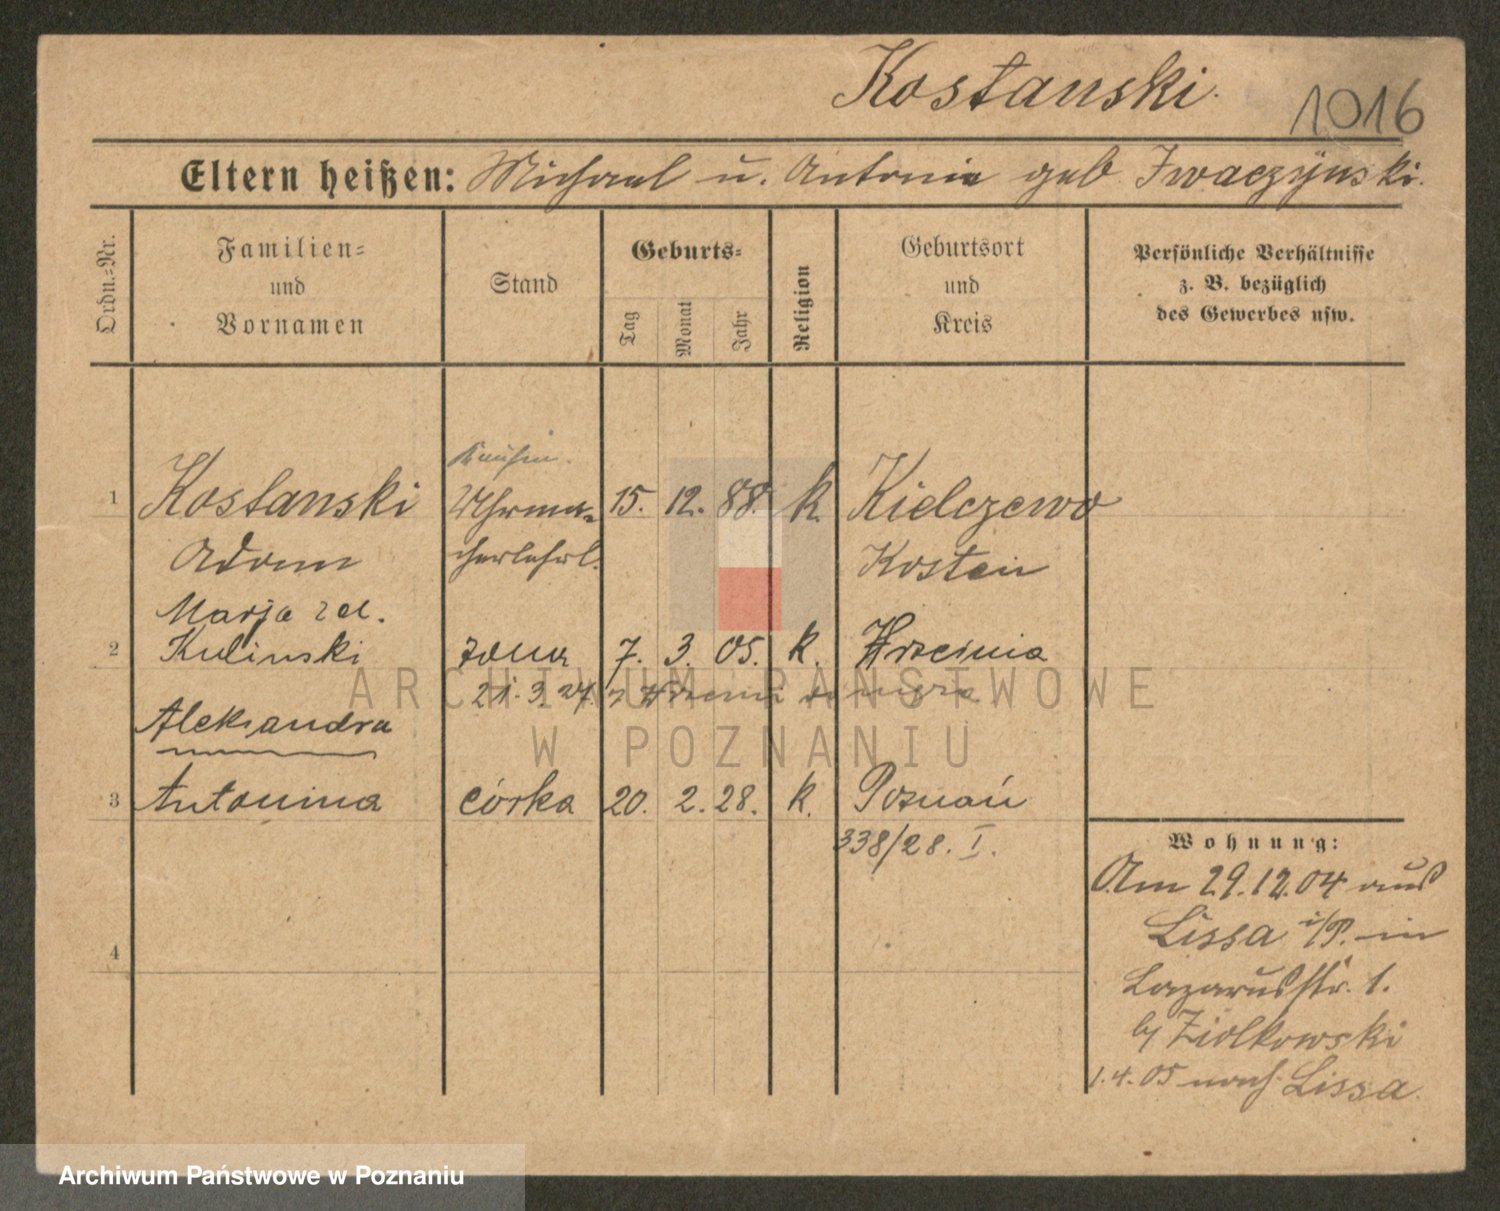 Kostanski.
1016
Eltern heißen: Michael u. Antonie geb Iwaczynski.
Ordn.-Nr.
Familien- und Vornamen
Stand
Geburts-
Tag
Monat
Jahr
Religion
Geburtsort und Kreis
Persönliche Verhältnisse z. B. bezüglich des Gewerbes usw.
1 Kostanski Uhrma- 15. 12. 88. k. Kielczewo
Adam cherlehrl. Kosten
Marja
2 Kulinski żona 7. 3. 05. k. Września
21. 3. 27.
Aleksandra
3 Antonina córka 20. 2. 28. k. Poznań
338/28. I.
4
Wohnung:
Am 29.12.04 aus
Lissa i/P. in
Lazarusstr. 1.
b/ Ziolkowski
1.4.05 nach Lissa.
ARCHIWUM PAŃSTWOWE
W POZNANIU
Archiwum Państwowe w Poznaniu